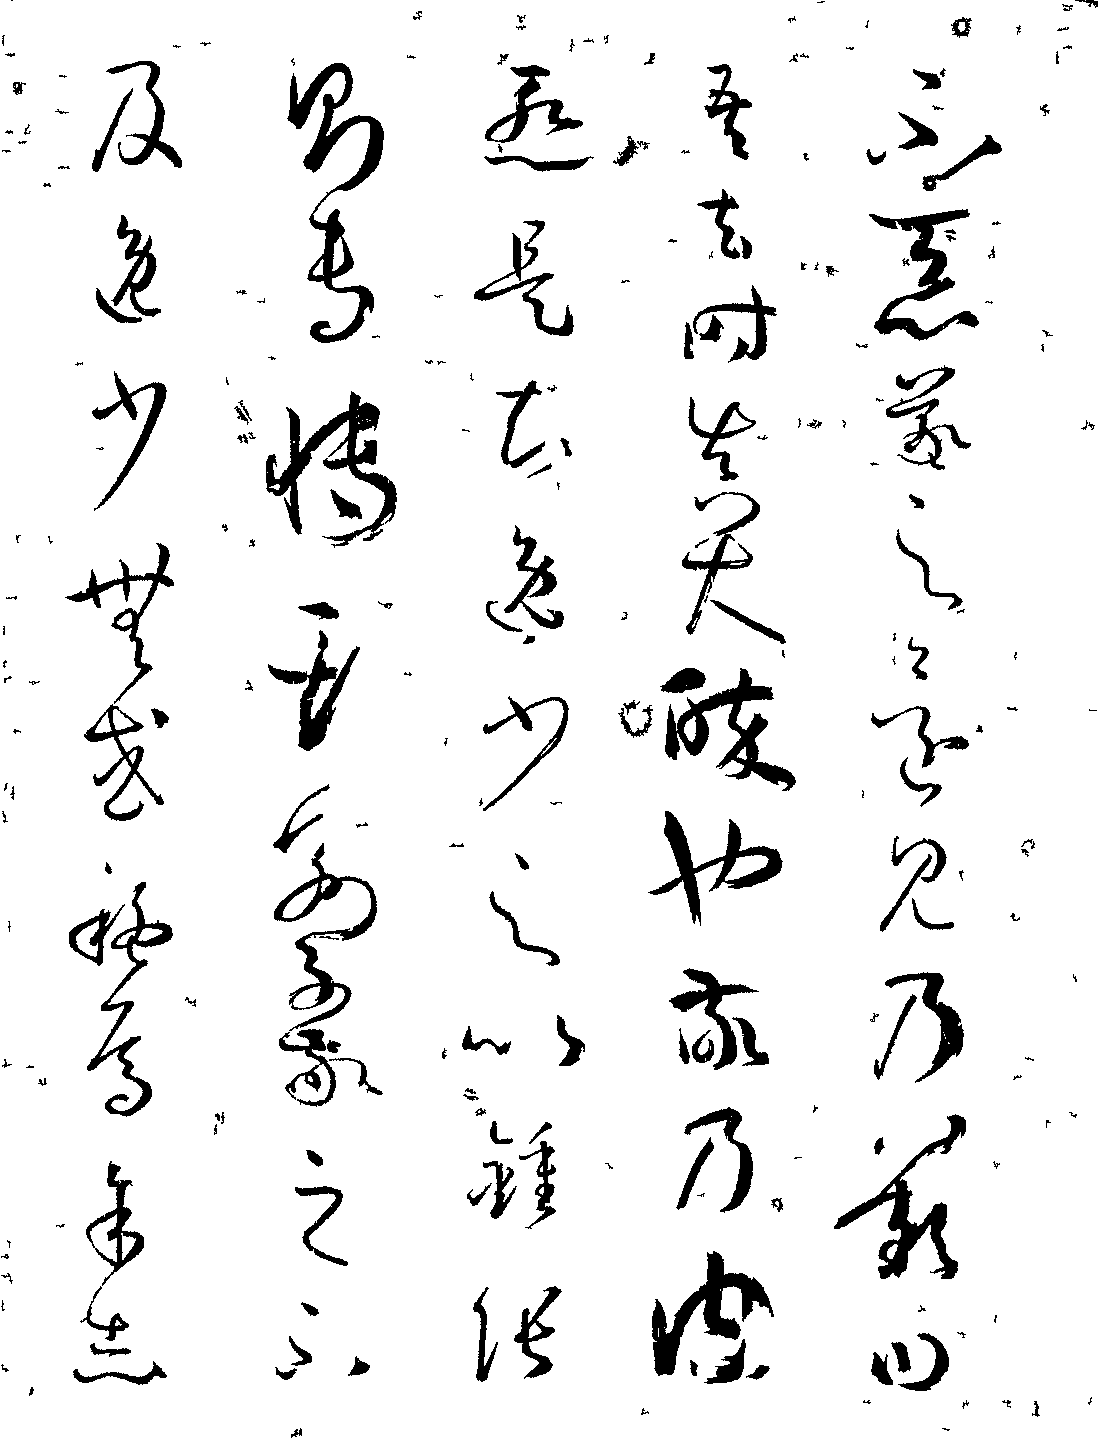 不惡羲之還見乃歎曰
吾去時真大醉也敬乃內
慚是知逸少之比鍾張
則專博斯別子敬之不
及逸少無或疑焉余志